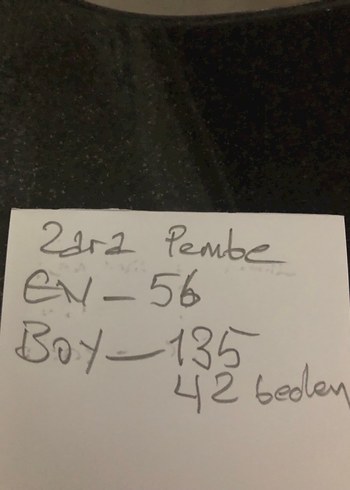 Zara Pembe
EN - 56
BOY - 135
42 beden